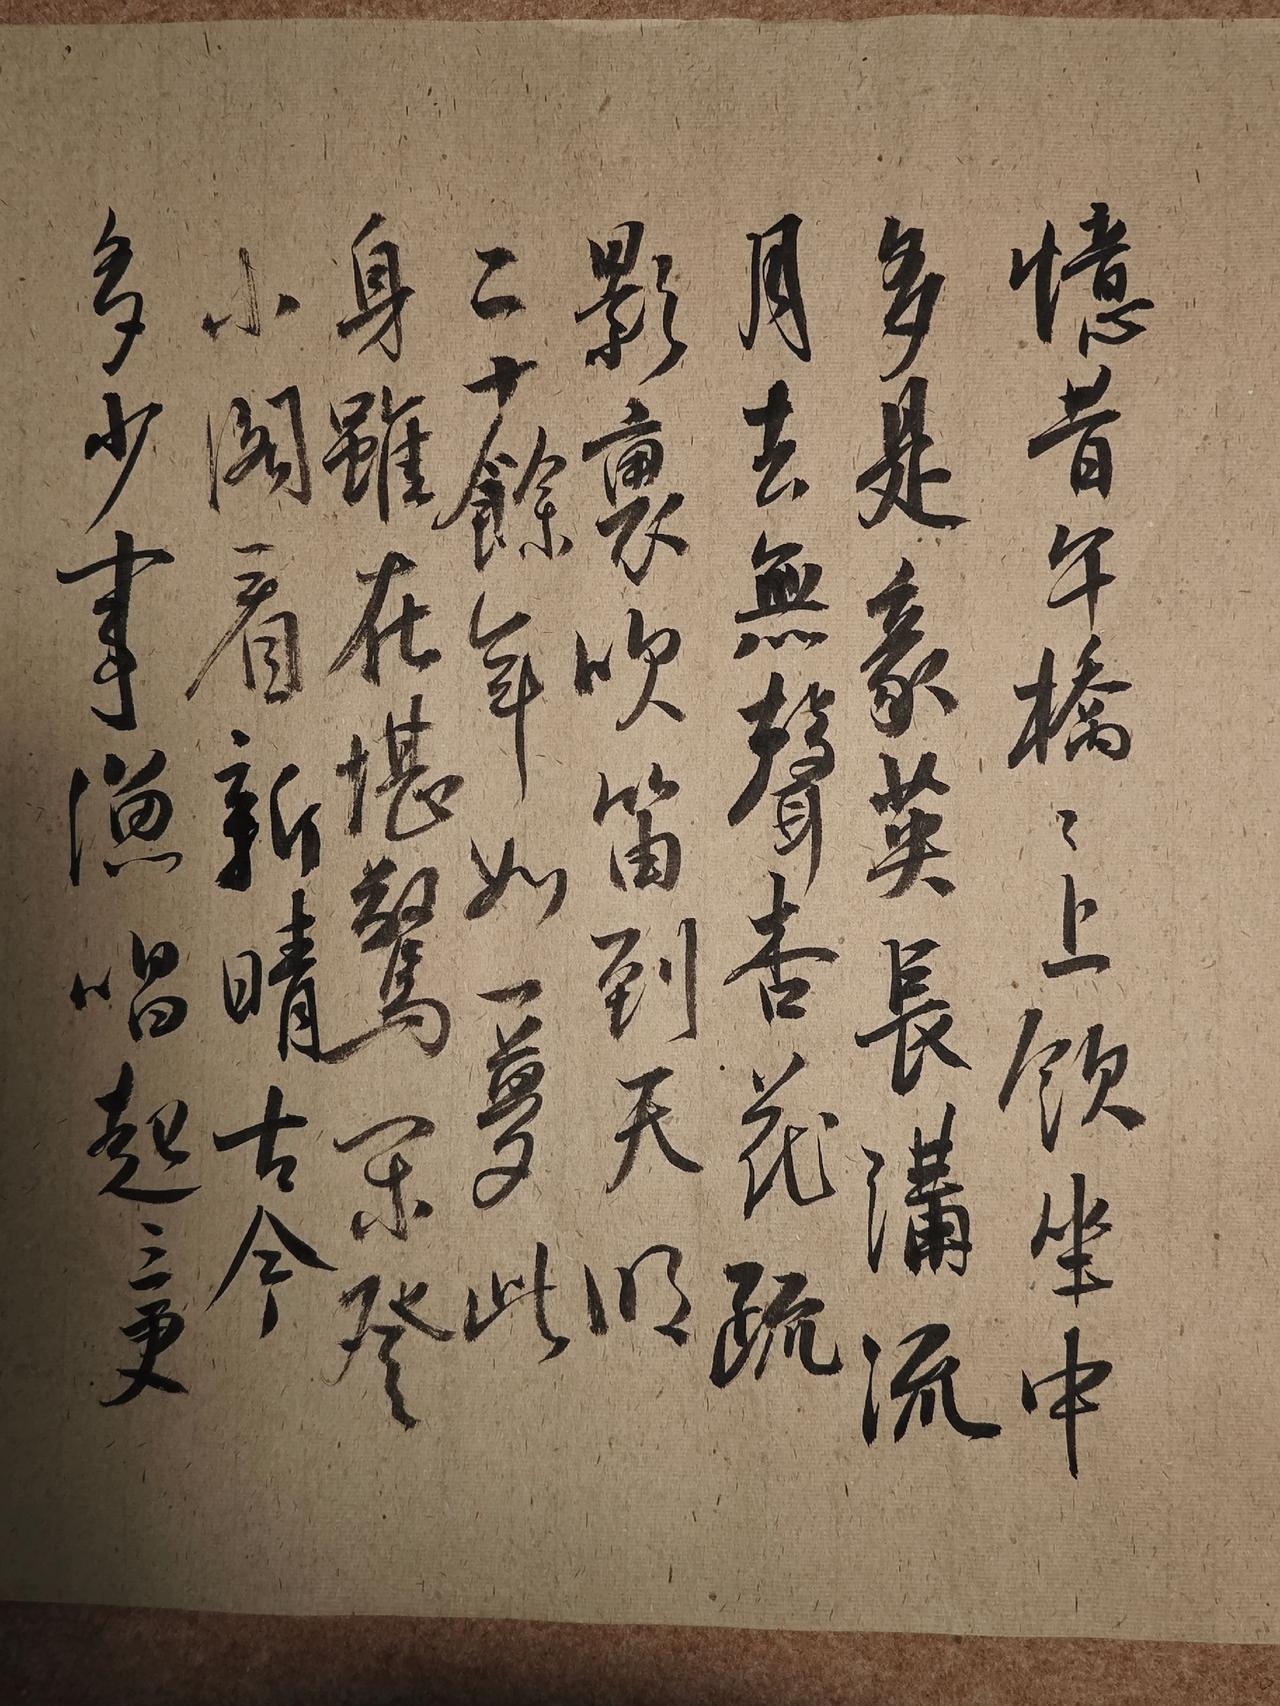 憶昔午橋〻上飲坐中
多是豪英長溝流
月去無聲杏花疏
影裏吹笛到天明
二十餘年如一夢此
身雖在堪驚閑登
小閣看新晴古今
多少事漁唱起三更